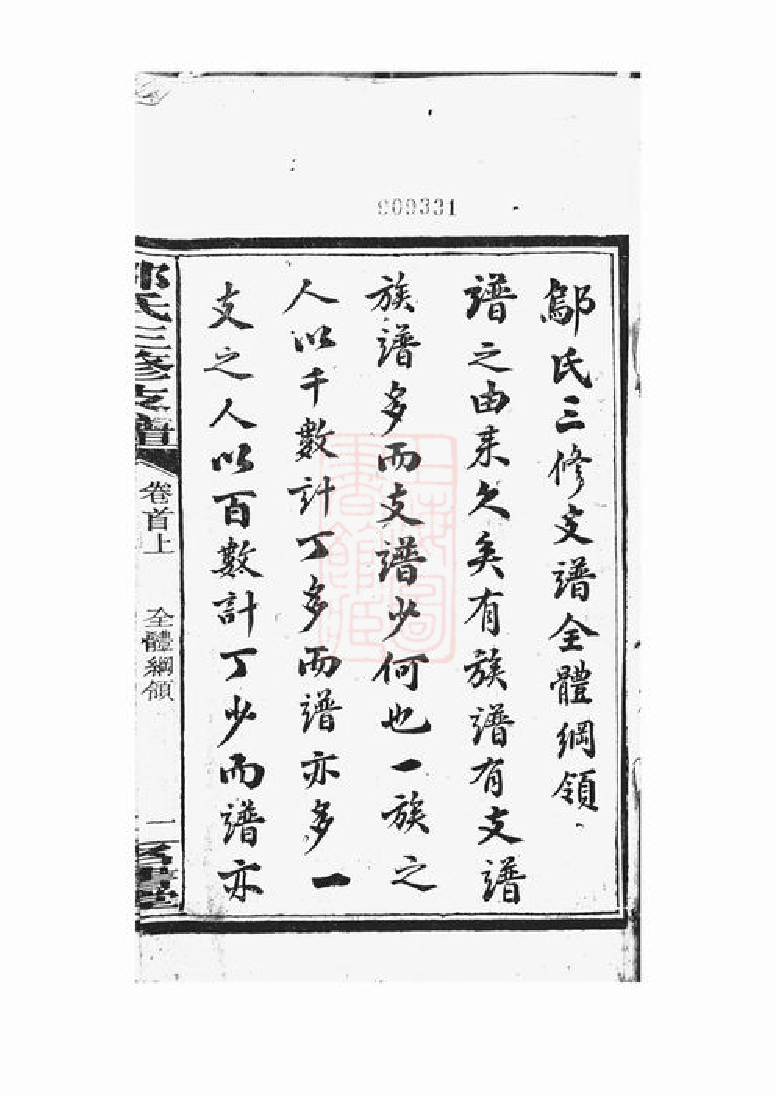 909331
鄔氏三修支譜全體綱領
譜之由来久矣有族譜有支譜
族譜多而支譜少何也一族之
人以千數計丁多而譜亦多一
支之人以百數計丁少而譜亦
氏三修支譜
卷首上
全體綱領
一